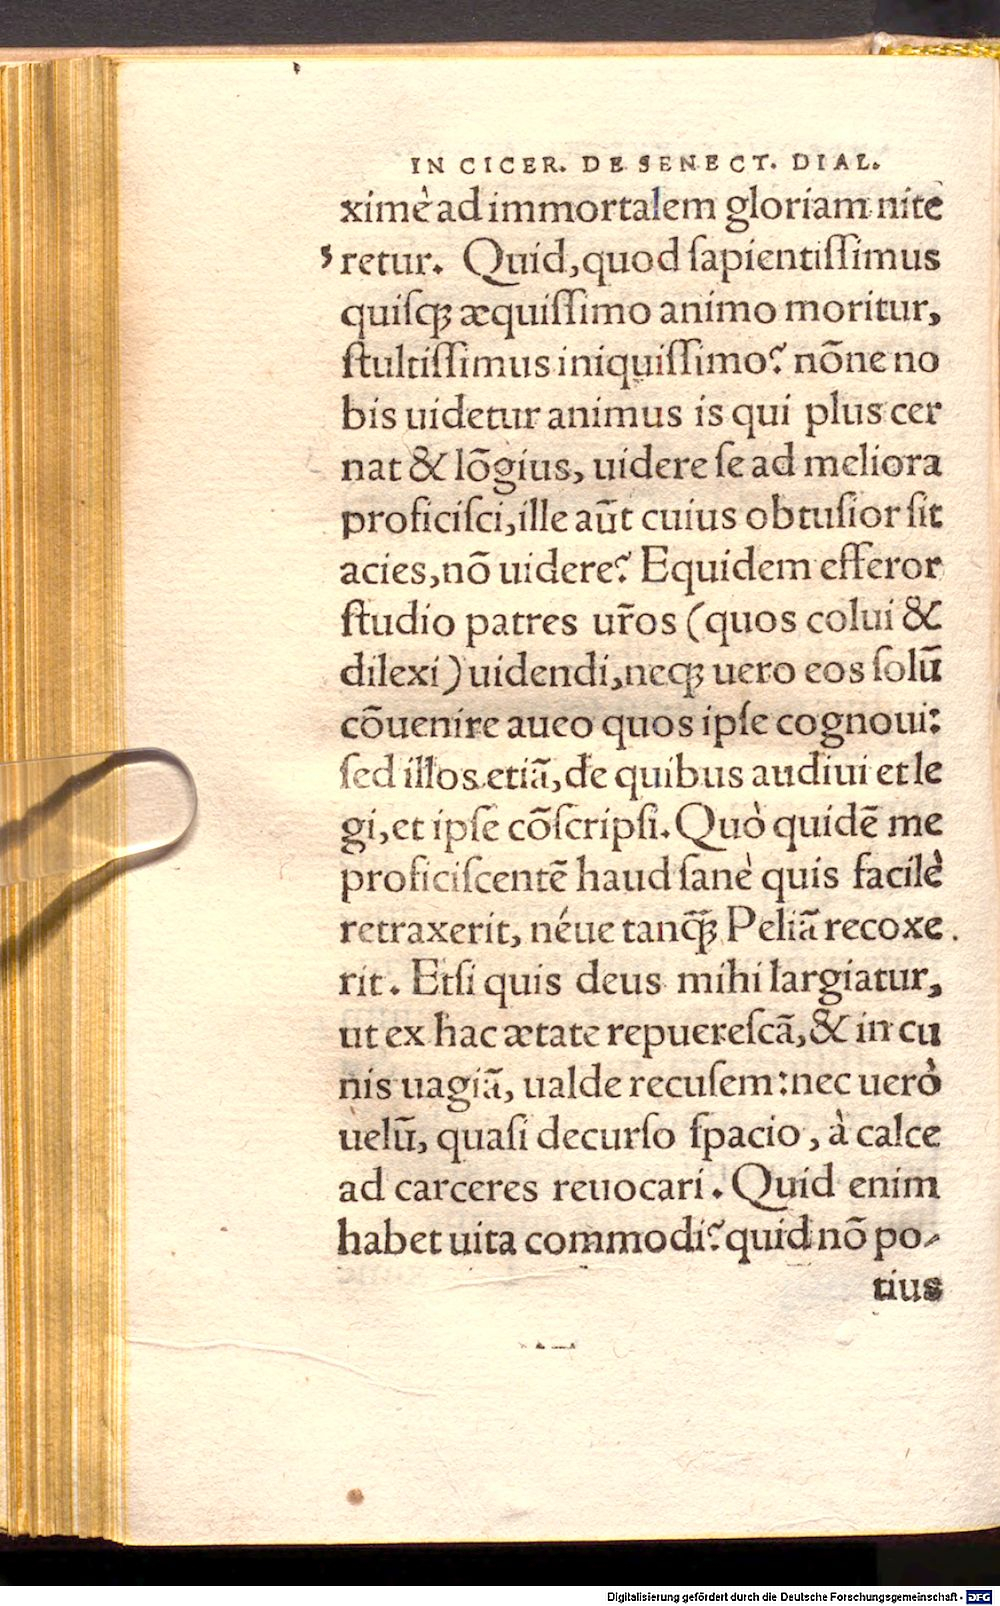 IN CICER. DE SENECT. DIAL.
ximè ad immortalem gloriam nite
retur. Quid, quod ſapientiſſimus
quiſqꝫ æquiſſimo animo moritur,
ſtultiſſimus iniquiſſimo? nõne no
bis uidetur animus is qui plus cer
nat & lõgius, uidere ſe ad meliora
proficiſci, ille aũt cuius obtuſior ſit
acies, nõ uidere? Equidem efferor
ſtudio patres ur̃os (quos colui &
dilexi) uidendi, neqꝫ uero eos ſolũ
cõuenire aueo quos ipſe cognoui:
ſed illos etiã, de quibus audiui et le
gi, et ipſe cõſcripſi. Quò quidẽ me
proficiſcentẽ haud ſanè quis facilè
retraxerit, néue tanq̃ꝫ Peliã recoxe
rit. Etſi quis deus mihi largiatur,
ut ex hac ætate repuereſcã, & in cu
nis uagiã, ualde recuſem: nec uerò
uelũ, quaſi decurſo ſpacio, à calce
ad carceres reuocari. Quid enim
habet uita commodi? quid nõ po-
tius
Digitalisierung gefördert durch die Deutsche Forschungsgemeinschaft - DFG